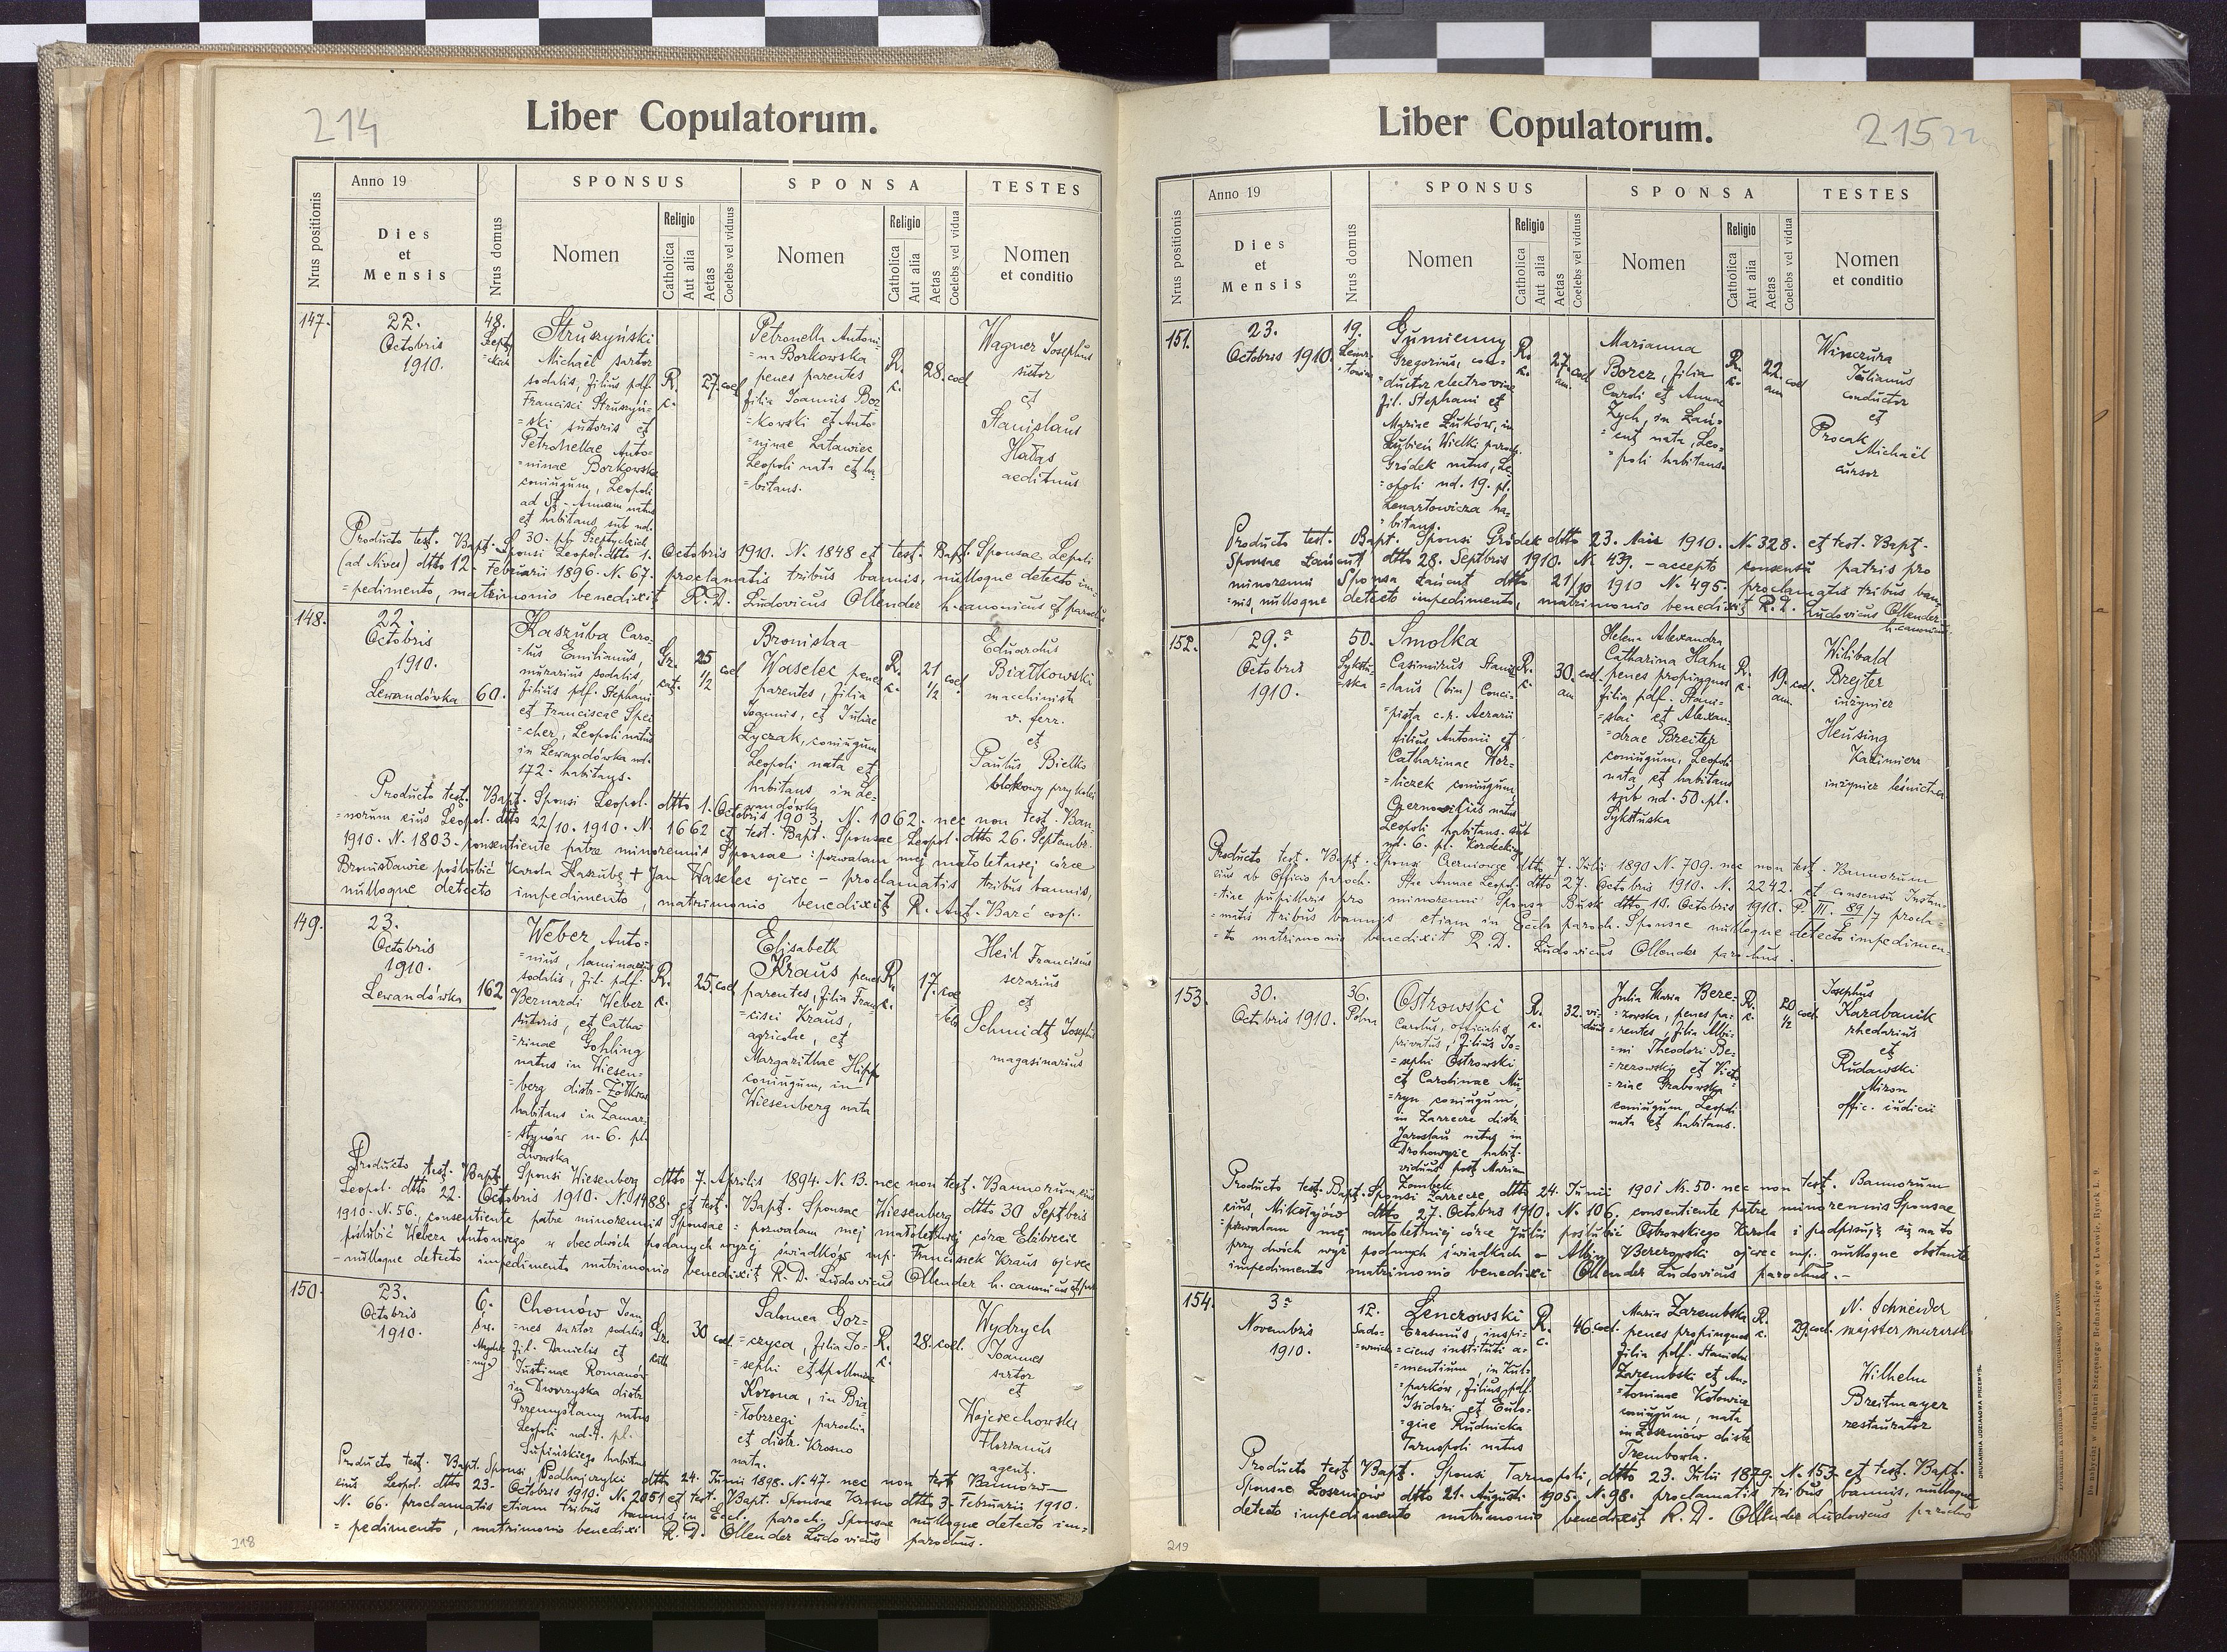 214
Liber Copulatorum.
Nrus positionis
Anno 19
Dies
et
Mensis
Nrus domus
SPONSUS
Nomen
Religio
Catholica
Aut alia
Aetas
Coelebs vel viduus
SPONSA
Nomen
Religio
Catholica
Aut alia
Aetas
Coelebs vel vidua
TESTES
Nomen
et conditio
147.
22.
Octobris
1910.
48.
Struszyński
Michaël sartor
sodalis, filius pdf.
Francisci Struszyń-
=ski sutoris et
Petronellae Anto-
=ninae Borkowska
coniugum, Leopoli
ad St. Annam natus
et habitans sub nd.
30. pl. Szeptyckich
R.
c.
27. coel
Petronella Antoni-
=na Borkowska
penes parentes
filia Joannis Bor-
=kowski et Anto-
=ninae Latawiec
Leopoli nata et ha-
=bitans.
R.
c.
28. coel
Wagner Josephus
sutor
et
Stanislaus
Hałas
aedituus
Producto test. Bapt. Sponsi Leopol. dtto 1. Octobris 1910. N. 1848 et test. Bapt. Sponsae Lepoli
(ad Nives) dtto 12. Februarii 1896. N. 67. proclamatis tribus bannis, nulloque detecto im-
=pedimento, matrimonio benedixit R. D. Ludovicus Ollender h. canonicus et parochus
148.
22.
Octobris
1910.
Lewandówka
60.
Kaszuba Caro-
=lus Emilianus,
murarius sodalis,
filius pdf. Stephani
et Franciscae Spei
=cher, Leopoli natus
in Lewandówka nd.
172. habitans.
Gr.
cat.
25
1/2
coel
Bronislaa
Waselec penes
parentes, filia
Joannis, et Juliae
Łyczak, coniugum
Leopoli nata et
habitans in Le-
=wandówka
R.
c.
21
1/2
coel.
Eduardus
Białkowski
macchinista
v. ferr.
et
Paulus Bielko
blokowy przy kolei
Producto test. Bapt. Sponsi Leopol. dtto 1. Octobris 1903. N. 1062. nec non test. Ban-
=norum eius Leopol. dtto 22/10. 1910. N. 1662 et test. Bapt. Sponsae Leopol. dtto 26. Septembr.
1910. N. 1803. consentiente patre minorennis Sponsae : pozwalam mej małoletniej córce
Bronisławie poślubić Karola Kaszubę + Jan Waselec ojciec - proclamatis tribus bannis,
nulloque detecto impedimento, matrimonio benedixit R. Ant. Barć coop.
149.
23.
Octobris
1910.
Lewandówka
162
Weber Anto-
=nius, laminarius
sodalis, fil. pdf.
Bernardi Weber
sutoris, et Catha-
=rinae Gohling
natus in Wiesen-
=berg distr. Żółkiew
habitans in Zamar-
=stynów n. 6. pl.
Lwowska
R.
c.
25. coel
Elisabeth
Kraus penes
parentes, filia Fran-
=cisci Kraus,
agricolae, et
Margarithae Hipp
coniugum, in
Wiesenberg nata
R.
c.
17. coe
=lebs
Heil Franciscus
serarius
et
Schmidt Josephus
magasinarius
Producto test. Bapt. Sponsi Wiesenberg dtto 7. Aprilis 1894. N. 13. nec non test. Bannorum eius
Leopol. dtto 22. Octobris 1910. N. 1988. et test. Bapt. Sponsae Wiesenberg dtto 30 Septbris
1910. N. 56. consentiente patre minorennis Sponsae : pozwalam mej małoletniej córce Elżbiecie
poślubić Webera Antoniego w obec dwóch podanych wyżej świadków mp. Franciszek Kraus ojciec
- nulloque detecto impedimento matrimonio benedixit R. D. Ludovicus Ollender h. canonicus et par.
150.
23.
Octobris
1910.
6.
Chomów Joan-
=nes sartor sodalis
fil. Danielis et
Justinae Romanów
in Dworzyska distr.
Przemyślany natus
Leopoli nd. 7. pl.
Supińskiego habitans
Gr.
cath
30 coel
Salomea Gor-
=czyca, filia Jo-
=sephi et Apolloniae
Korona, in Bia-
=łobrzegi parochia
et distr. Krosno
nata.
R.
c.
28. coel.
Wydrych
Joannes
sartor
et
Wojciechowski
Florianus
agent.
Producto test. Bapt. Sponsi Podhajczyki dtto 24. Junii 1898. N. 47. nec non test Bannoru-
eius Leopol. dtto 23. Octobris 1910. N. 2051 et test. Bapt. Sponsae Krosno dtto 3. Februarii 1910.
N. 66. proclamatis etiam tribus bannis in Eccl. paroch. Sponsae nulloque detecto im-
=pedimento, matrimonio benedixi R. D. Ollender Ludovicus parochus.
218
215
Liber Copulatorum.
Nrus positionis
Anno 19
Dies
et
Mensis
Nrus domus
SPONSUS
Nomen
Religio
Catholica
Aut alia
Aetas
Coelebs vel viduus
SPONSA
Nomen
Religio
Catholica
Aut alia
Aetas
Coelebs vel vidua
TESTES
Nomen
et conditio
151.
23.
Octobris 1910.
19.
Gumienny
Gregorius, con-
=ductor electroviae
fil. Stephani et
Mariae Łuków, in
Lubień Wielki paroch.
Gródek natus, Le-
=opoli nd. 19. pl.
Lenartowicza ha-
=bitans.
R.
c.
27. coel
an.
Marianna
Borcz, filia
Caroli et Annae
Zych, in Łań-
=cut nata, Leo-
=poli habitans.
R.
c.
22. coel
an
Winczura
Julianus
conductor
et
Procak
Michaël
cursor
Producto test. Bapt. Sponsi Gródek dtto 23. Maii 1910. N. 328. et test. Bapt.
Sponsae Łańcut dtto 28. Septbris 1910. N. 439. - accepto consensu patris pro
minorenni Sponsa Łańcut dtto 21/10 1910 N. 495. proclamatis tribus ban-
=nis, nulloque detecto impedimento, matrimonio benedixit R. D. Ludovicus Ollender
h. canonicus
152.
29.a
Octobris
1910.
50.
Sykstu-
=ska
Smolka
Casimirus Stanis-
=laus (bin) Conci-
=pista c. r. Aerarii
filius Antonii et
Catharinae Hor-
=liczek coniugum,
Czernovicius natus
Leopoli habitans sub
nd. 6. pl. Kordeckiego
R.
c.
30. coel
an
Helena Alexandra
Catharina Hahn
penes propinquos
filia pdf. Stani-
=slai et Alexan-
=drae Breiter
coniugum, Leopoli
nata et habitans
sub nd. 50. pl.
Sykstuska
R.
c.
19. coel.
an.
Wilibald
Brejter
inżynier
Heusing
Kazimierz
inżynier leśnictwa
Producto test. Bapt. Sponsi Czerniowce dtto 7. Julii 1890 N. 709. nec non test. Bannorum
eius ab Officio paroch. Stae Annae Leopol. dtto 27. Octobris 1910. N. 2242. et consensu Instan-
=tiae pupillaris pro minorenni Sponsa Busk dtto 18. Octobris 1910. P. III. 89/7 procla-
=matis tribus bannis etiam in Eccla paroch. Sponsae nulloque detecto impedimen-
=to matrimonio benedixit R. D. Ludovicus Ollender parochus.
153.
30.
Octobris 1910.
36.
Polna
Ostrowski
Carolus, officialis
privatus, filius Jo-
=sephi Ostrowski
et Carolinae Mu-
=ryn coniugum,
in Zarzecze distr.
Jaroslau natus in
Drohowyże habit.
viduus post Mariam
Zombek
R.
c.
32. vi-
duus
Julia Maria Bere-
=zowska, penes pa-
=rentes, filia Albi-
=ni Theodori Be-
=rezowski et Victo-
=riae Grabowska
coniugum, Leopoli
nata et habitans.
R.
c.
20
1/2
coel
Josephus
Karabanik
rhedarius
et
Rudawski
Miron
offic. iudicii
Producto test. Bapt. Sponsi Zarzecze, dtto 24. Junii 1901 Nr. 50. nec non test. Bannorum
eius, Mikołajów dtto 27. Octobris 1910. N. 106. consentiente patre minorennis Sponsae
=pozwalam mej małoletniej córce Julii poślubić Ostrowskiego Karola i podpisuję się na to
przy dwóch wyż podanych świadkach - Albin Berezowski ojciec mp. nulloque obstante
impedimento matrimonio benedixi Ollender Ludovicus parochus.-
154.
3.a
Novembris
1910.
12.
Sado-
=wnicka
Lenczowski
Erasmus, inspi-
=ciens instituti a-
=mentium, in Kul-
=parków, filius pdf.
Isidori et Eulo-
=giae Rudnicka
Tarnopoli natus
R.
c.
46. coel.
Maria Zarembska
penes propinquos
filia pdf. Stanislai
Zarembski et An-
=toninae Kotowicz
coniugum, nata
in Łoszniów distr.
Trembowla.
R.
c.
29. coel.
N. Schneider
majster murarski
Wilhelm
Breitmayer
restaurator
Producto test Bapt. Sponsi Tarnopoli, dtto 23. Julii 1879. N. 153. et test. Bapt.
Sponsae Łoszniów dtto 21. Augusti 1905. N. 98. proclamatis tribus bannis, nulloque
detecto impedimento matrimonio benedixit R. D. Ollender Ludovicus parochus
219
DRUKARNIA UDZIAŁOWA PRZEMYŚL.
Do nabycia w drukarni Szczęsnego Bednarskiego we Lwowie, Rynek L. 9.